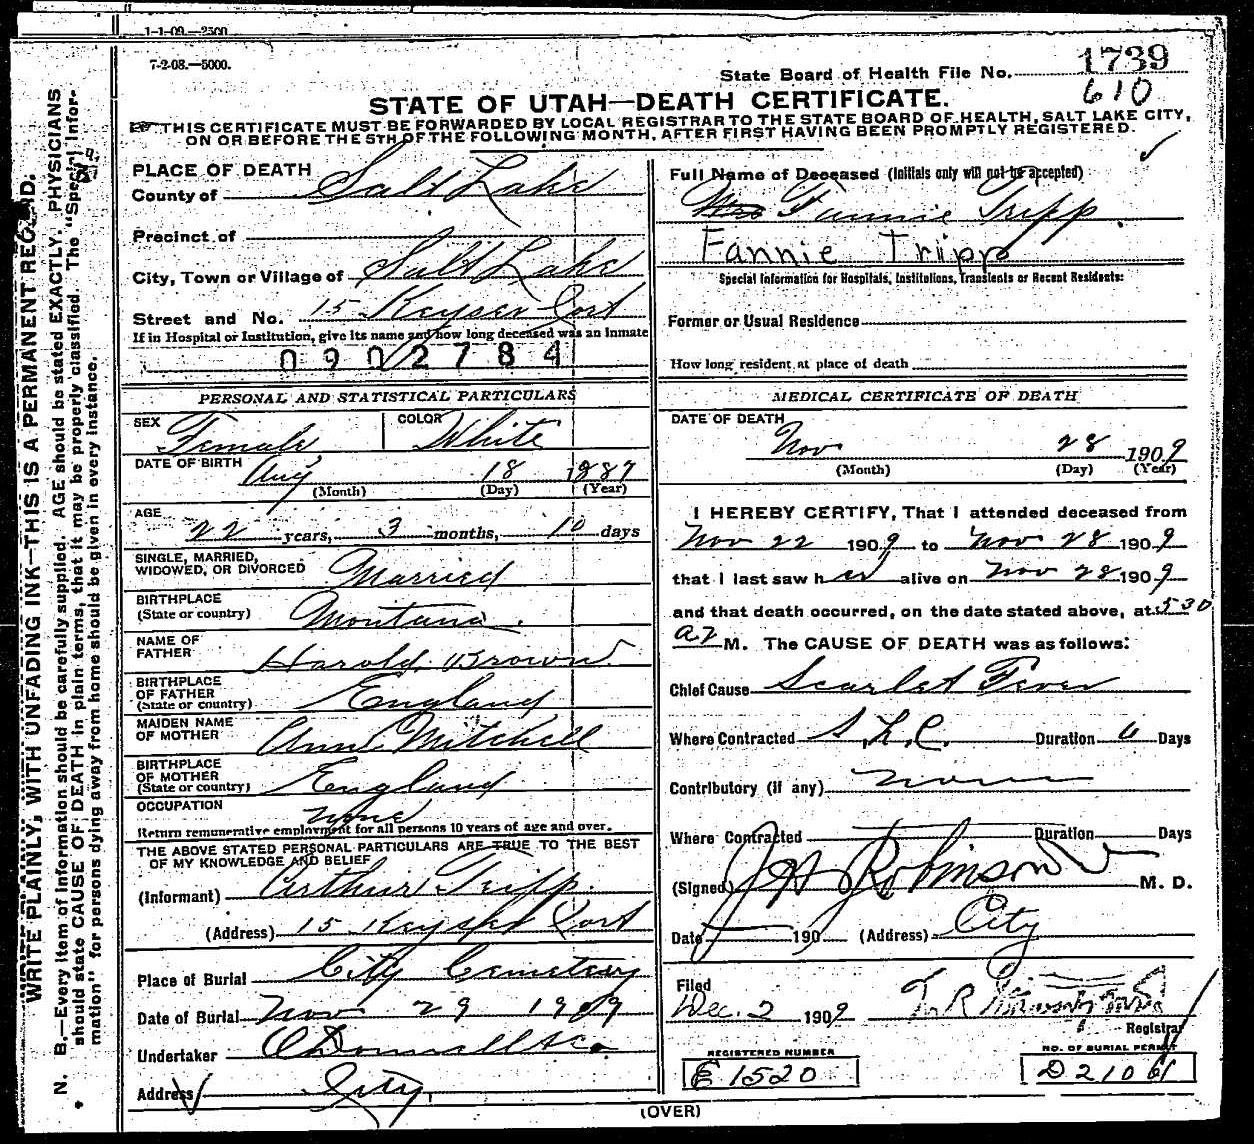 1-1-09.—2500
7-2-08.—5000.
State Board of Health File No. 1739
610
STATE OF UTAH—DEATH CERTIFICATE.
THIS CERTIFICATE MUST BE FORWARDED BY LOCAL REGISTRAR TO THE STATE BOARD OF HEALTH, SALT LAKE CITY,
ON OR BEFORE THE 5TH OF THE FOLLOWING MONTH, AFTER FIRST HAVING BEEN PROMPTLY REGISTERED.
PLACE OF DEATH
County of Salt Lake
Precinct of
City, Town or Village of Salt Lake
Street and No. 15 Keyser Cort
If in Hospital or Institution, give its name and how long deceased was an inmate
0902784
PERSONAL AND STATISTICAL PARTICULARS
SEX Female COLOR White
DATE OF BIRTH Aug 18 1887
(Month) (Day) (Year)
AGE
22 years, 3 months, 10 days
SINGLE, MARRIED,
WIDOWED, OR DIVORCED Married
BIRTHPLACE
(State or country) Montana.
NAME OF
FATHER Harold Brown
BIRTHPLACE
OF FATHER
(State or country) England
MAIDEN NAME
OF MOTHER Ann Mitchell
BIRTHPLACE
OF MOTHER
(State or country) England
OCCUPATION none
Return remunerative employment for all persons 10 years of age and over.
THE ABOVE STATED PERSONAL PARTICULARS ARE TRUE TO THE BEST
OF MY KNOWLEDGE AND BELIEF
(Informant) Arthur Tripp.
(Address) 15 Keyser Cort
Place of Burial City Cemetery
Date of Burial Nov 29 1909
Undertaker O'Donnell & Co.
Address City.
Full Name of Deceased (Initials only will not be accepted)
Mrs Fannie Tripp.
Fannie Tripp
Special Information for Hospitals, Institutions, Transients or Recent Residents:
Former or Usual Residence
How long resident at place of death
MEDICAL CERTIFICATE OF DEATH
DATE OF DEATH
Nov 28 1909
(Month) (Day) (Year)
I HEREBY CERTIFY, That I attended deceased from
Nov 22 1909 to Nov 28 1909
that I last saw her alive on Nov 28 1909
and that death occurred, on the date stated above, at 530
a M. The CAUSE OF DEATH was as follows:
Chief Cause Scarlet Fever
Where Contracted S.L.C. Duration 6 Days
Contributory (if any) none
Where Contracted Duration Days
(Signed) Robinson M. D.
Date 190 (Address) City
Filed
Dec. 2 1909 T. R.
Registrar
REGISTERED NUMBER
E 1520
NO. OF BURIAL PERMIT
D 2106
(OVER)
WRITE PLAINLY, WITH UNFADING INK—THIS IS A PERMANENT RECORD.
N. B.—Every item of information should be carefully supplied. AGE should be stated EXACTLY. PHYSICIANS
should state CAUSE OF DEATH in plain terms, that it may be properly classified. The "Special Infor-
mation" for persons dying away from home should be given in every instance.